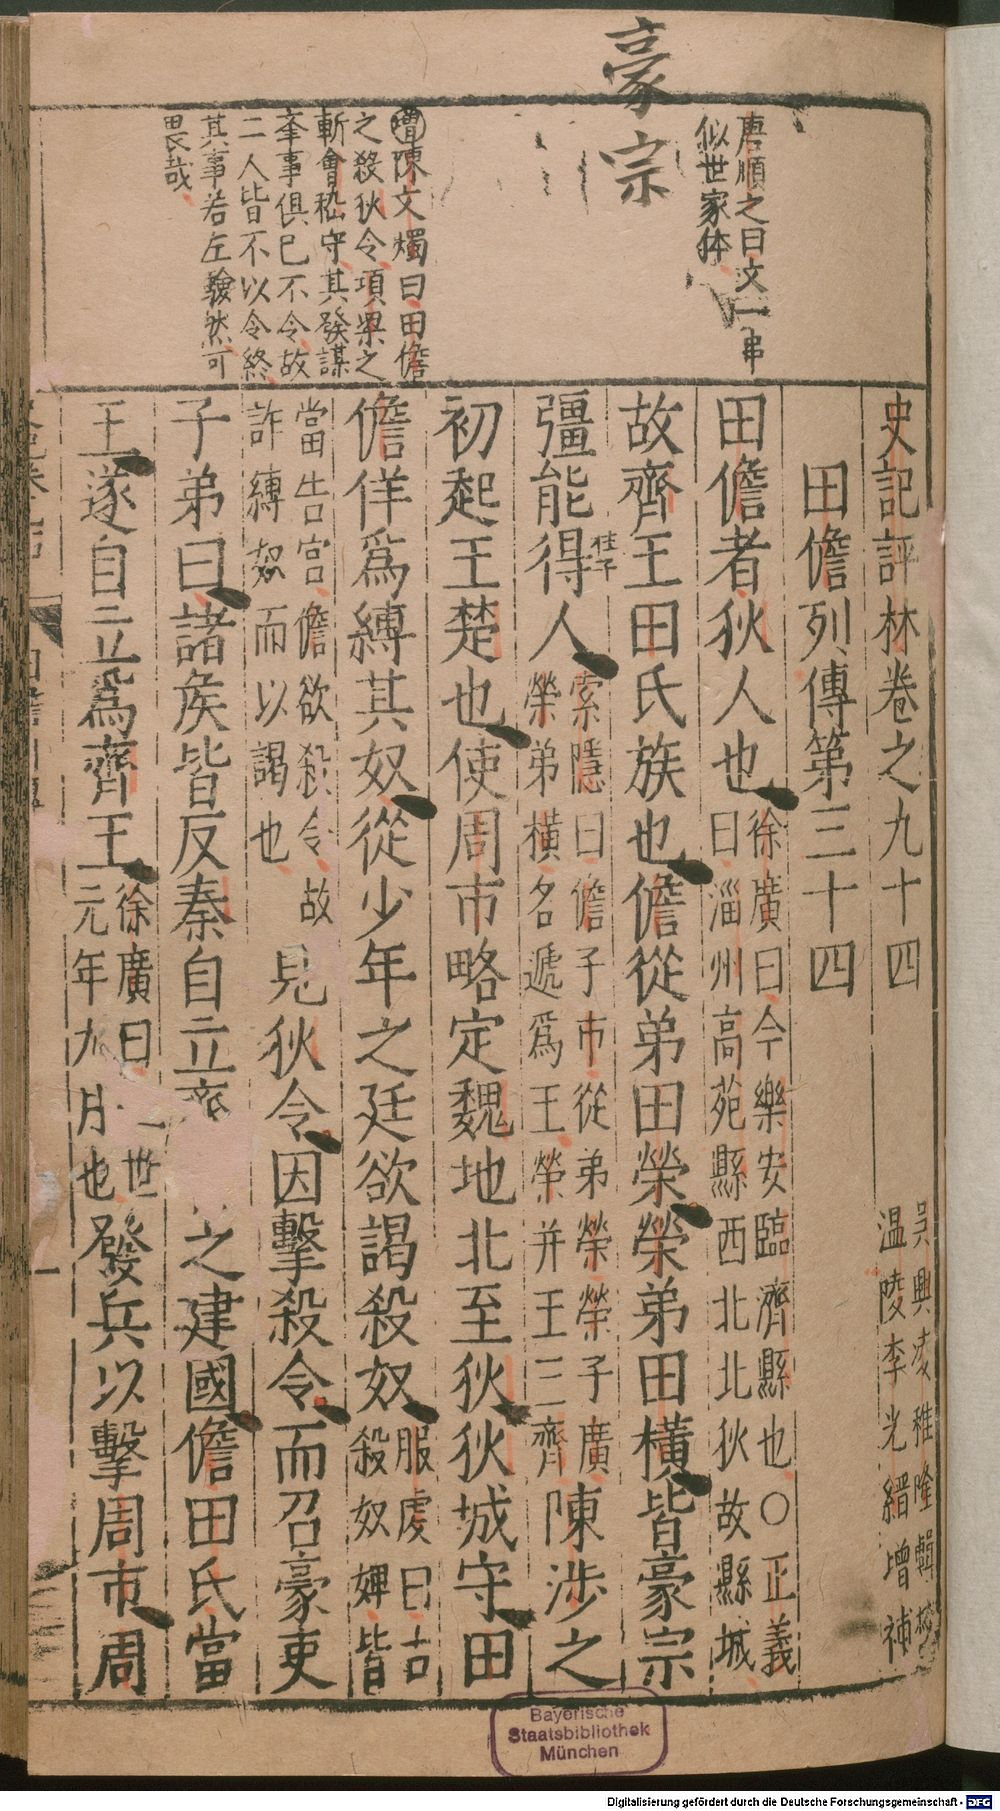 豪宗
唐順之曰文一串
似世家体
增陳文燭曰田儋
之殺狄令項梁之
斬會稽守其發謀
舉事俱已不令故
二人皆不以令終
其事若左驗然可
畏哉
史記評林卷之九十四
吳興凌稚隆輯校
温陵李光縉增補
田儋列傳第三十四
田儋者狄人也
徐廣曰今樂安臨濟縣也○正義
曰淄州高苑縣西北北狄故縣城
故齊王田氏族也儋從弟田榮榮弟田橫皆豪宗
彊能得人
索隱曰儋子市從弟榮榮子廣
榮弟橫各遞爲王榮并王三齊
陳涉之
初起王楚也使周市略定魏地北至狄狄城守田
儋佯爲縛其奴從少年之廷欲謁殺奴
服虔曰古
殺奴婢皆
當告官儋欲殺令故
詐縛奴而以謁也
見狄令因擊殺令而召豪吏
子弟曰諸矦皆反秦自立齊
之建國儋田氏當
王遂自立爲齊王
徐廣曰二世
元年九月也
發兵以擊周市周
Bayerische
Staatsbibliothek
München
Digitalisierung gefördert durch die Deutsche Forschungsgemeinschaft - DFG